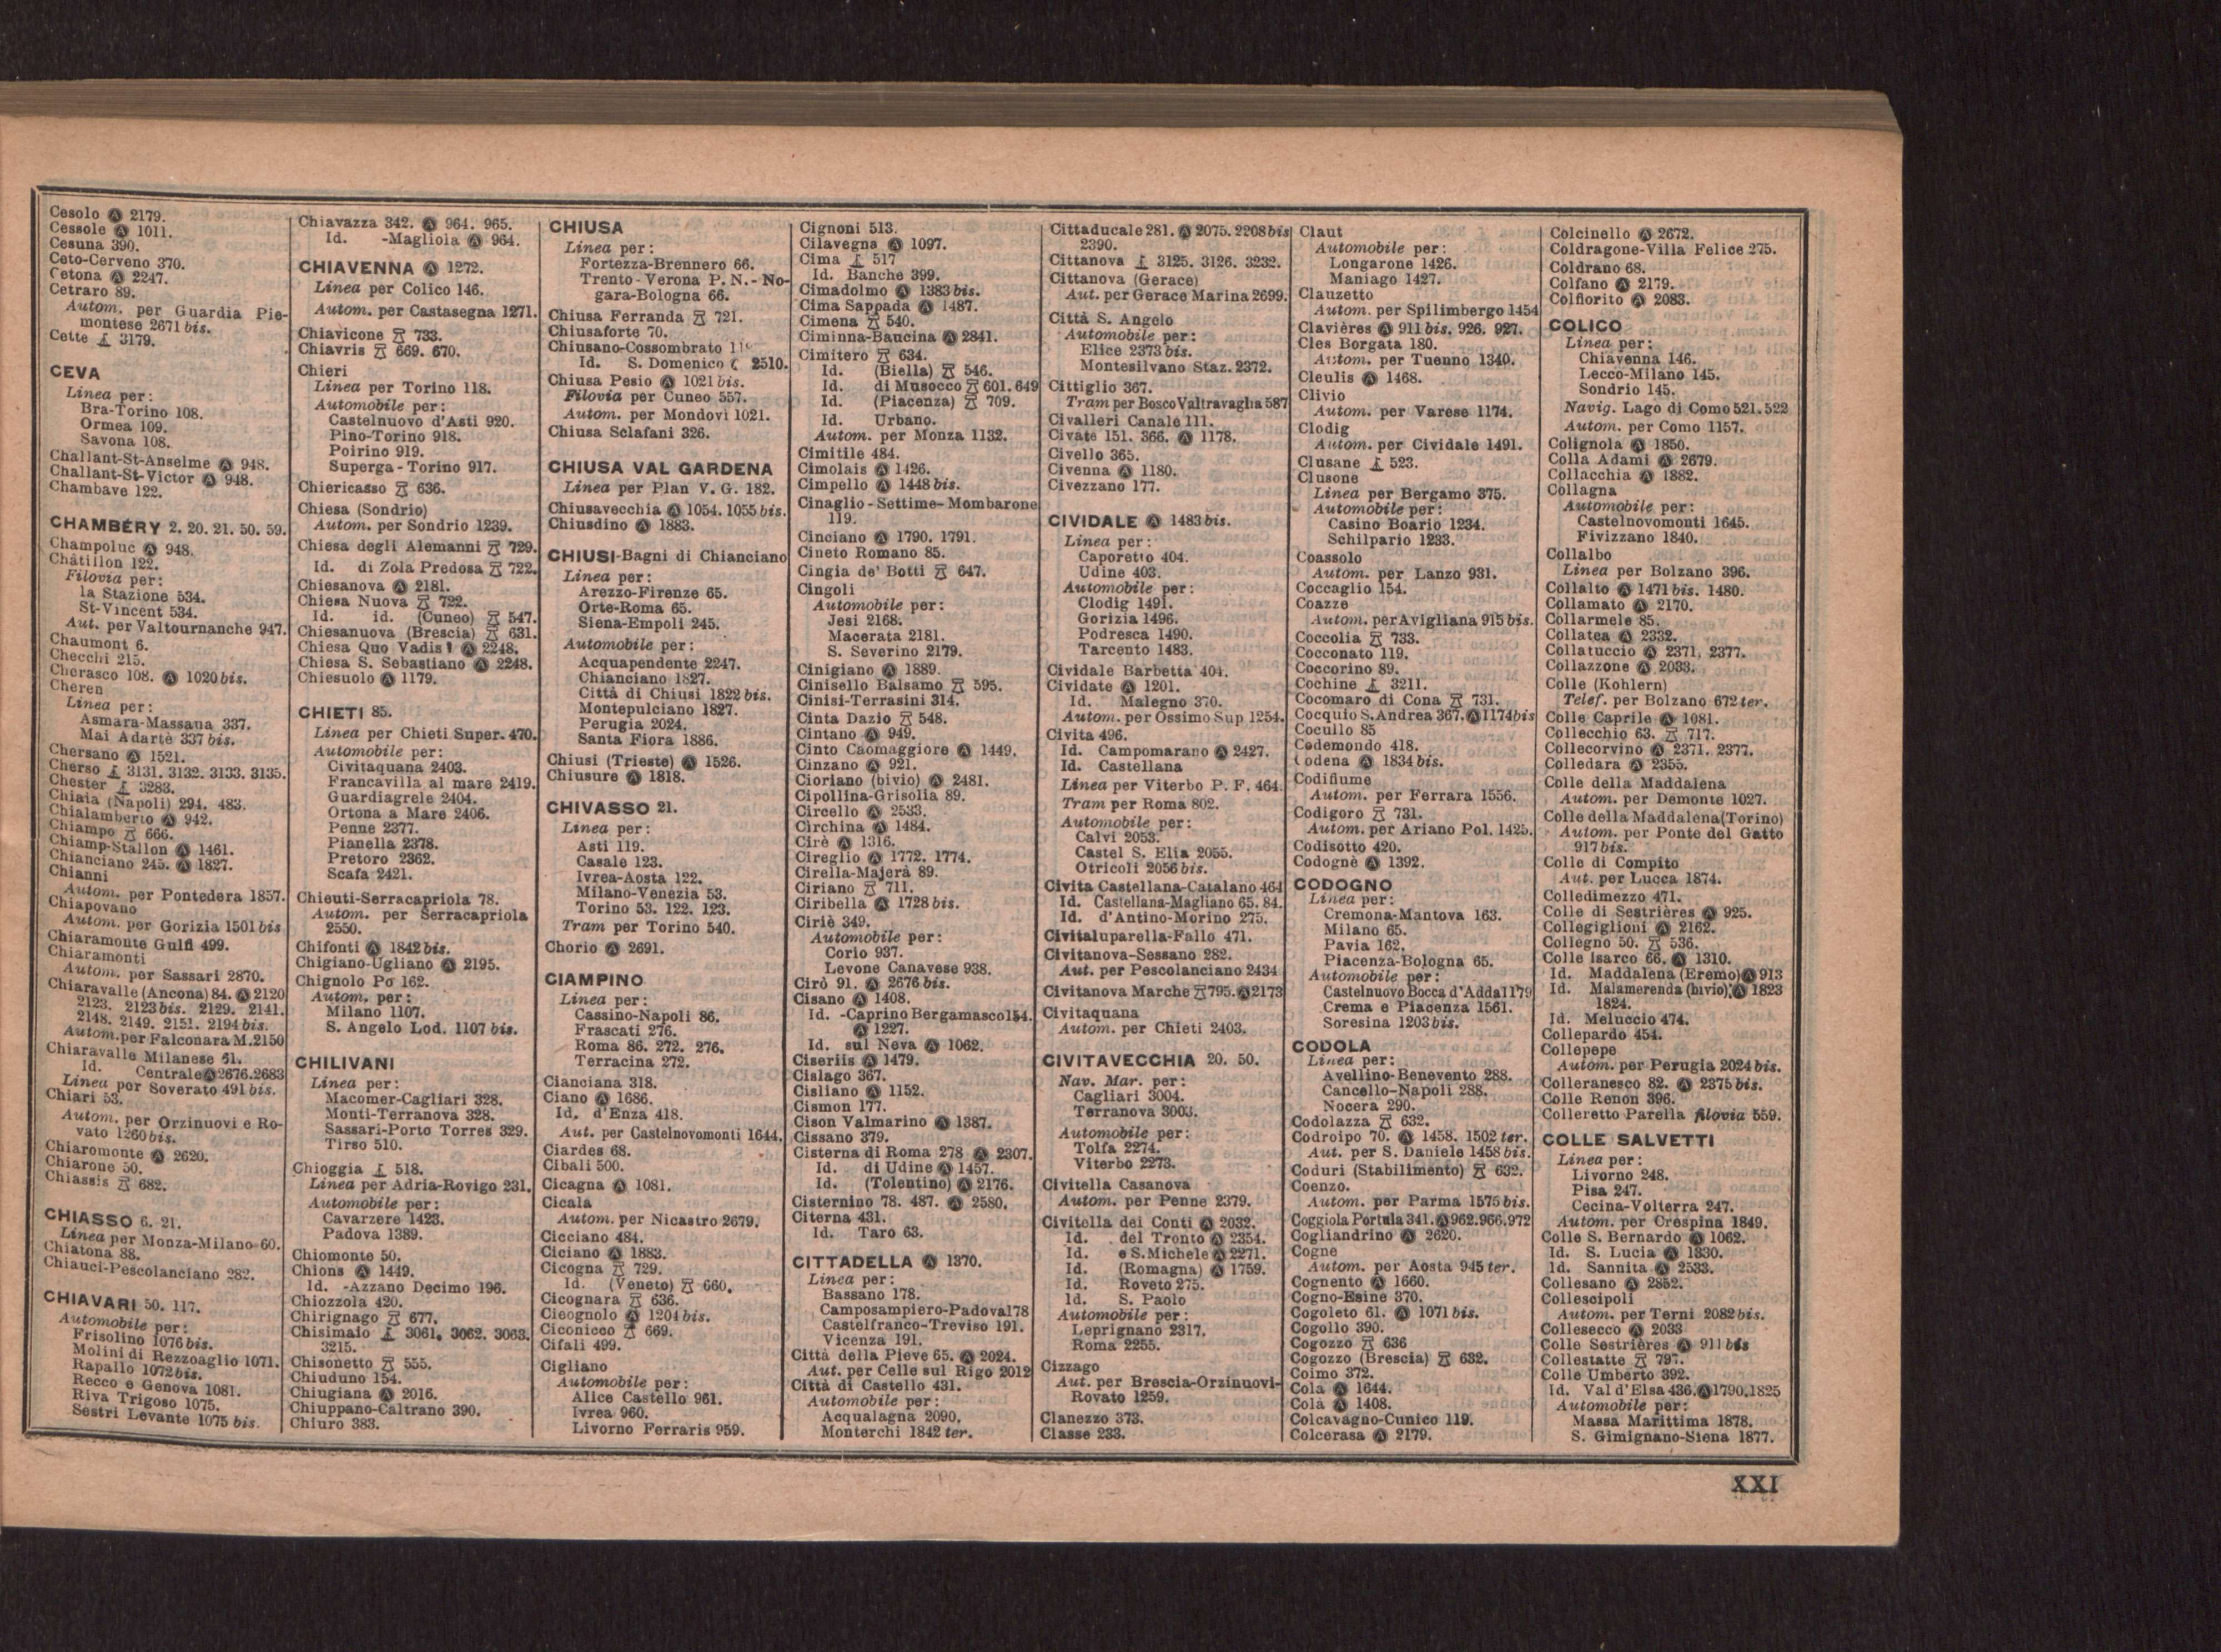 Cesolo Ⓐ 2179.
Cessole Ⓐ 1011.
Cesuna 390.
Ceto-Cerveno 370.
Cetona Ⓐ 2247.
Cetraro 89.
Autom. per Guardia Pie-
montese 2671 bis.
Cette 3179.
CEVA
Linea per:
Bra-Torino 108.
Ormea 109.
Savona 108.
Challant-St-Anselme Ⓐ 948.
Challant-St-Victor Ⓐ 948.
Chambave 122.
CHAMBÉRY 2. 20. 21. 50. 59.
Champoluc Ⓐ 948.
Châtillon 122.
Filovia per:
la Stazione 534.
St-Vincent 534.
Aut. per Valtournanche 947.
Chaumont 6.
Checchi 215.
Cherasco 108. Ⓐ 1020 bis.
Cheren
Linea per:
Asmara-Massaua 337.
Mai Adartè 337 bis.
Chersano Ⓐ 1521.
Cherso 3131. 3132. 3133. 3135.
Chester 3283.
Chiaia (Napoli) 294. 483.
Chialamberto Ⓐ 942.
Chiampo 666.
Chiamp-Stallon Ⓐ 1461.
Chianciano 245. Ⓐ 1827.
Chianni
Autom. per Pontedera 1857.
Chiapovano
Autom. per Gorizia 1501 bis
Chiaramonte Gulfi 499.
Chiaramonti
Autom. per Sassari 2870.
Chiaravalle (Ancona) 84. Ⓐ 2120
2123. 2123 bis. 2129. 2141.
2148. 2149. 2151. 2194 bis.
Autom. per Falconara M. 2150
Chiaravalle Milanese 51.
Id. Centrale Ⓐ 2676. 2683
Linea per Soverato 491 bis.
Chiari 53.
Autom. per Orzinuovi e Ro-
vato 1260 bis.
Chiaromonte Ⓐ 2620.
Chiarone 50.
Chiassis 682.
CHIASSO 6. 21.
Linea per Monza-Milano 60.
Chiatona 88.
Chiauci-Pescolanciano 282.
CHIAVARI 50. 117.
Automobile per:
Frisolino 1076 bis.
Molini di Rezzoaglio 1071.
Rapallo 1072 bis.
Recco e Genova 1081.
Riva Trigoso 1075.
Sestri Levante 1075 bis.
Chiavazza 342. Ⓐ 964. 965.
Id. -Magliola Ⓐ 964.
CHIAVENNA Ⓐ 1272.
Linea per Colico 146.
Autom. per Castasegna 1271.
Chiavicone 733.
Chiavris 669. 670.
Chieri
Linea per Torino 118.
Automobile per:
Castelnuovo d'Asti 920.
Pino-Torino 918.
Poirino 919.
Superga-Torino 917.
Chiericasso 636.
Chiesa (Sondrio)
Autom. per Sondrio 1239.
Chiesa degli Alemanni 729.
Id. di Zola Predosa 722.
Chiesanova Ⓐ 2181.
Chiesa Nuova 722.
Id. id. (Cuneo) 547.
Chiesanuova (Brescia) 631.
Chiesa Quo Vadis! Ⓐ 2248.
Chiesa S. Sebastiano Ⓐ 2248.
Chiesuolo Ⓐ 1179.
CHIETI 85.
Linea per Chieti Super. 470.
Automobile per:
Civitaquana 2403.
Francavilla al mare 2419.
Guardiagrele 2404.
Ortona a Mare 2406.
Penne 2377.
Pianella 2378.
Pretoro 2362.
Scafa 2421.
Chieuti-Serracapriola 78.
Autom. per Serracapriola
2550.
Chifonti Ⓐ 1842 bis.
Chigiano-Ugliano Ⓐ 2195.
Chignolo Po 162.
Autom. per:
Milano 1107.
S. Angelo Lod. 1107 bis.
CHILIVANI
Linea per:
Macomer-Cagliari 328.
Monti-Terranova 328.
Sassari-Porto Torres 329.
Tirso 510.
Chioggia 518.
Linea per Adria-Rovigo 231.
Automobile per:
Cavarzere 1423.
Padova 1389.
Chiomonte 50.
Chions Ⓐ 1449.
Id. -Azzano Decimo 196.
Chiozzola 420.
Chirignago 677.
Chisimaio 3061. 3062. 3063.
3215.
Chisonetto 555.
Chiuduno 154.
Chiugiana Ⓐ 2016.
Chiuppano-Caltrano 390.
Chiuro 383.
CHIUSA
Linea per:
Fortezza-Brennero 66.
Trento-Verona P. N.-No-
gara-Bologna 66.
Chiusa Ferranda 721.
Chiusaforte 70.
Chiusano-Cossombrato
Id. S. Domenico 2510.
Chiusa Pesio Ⓐ 1021 bis.
Filovia per Cuneo 557.
Autom. per Mondovì 1021.
Chiusa Sclafani 326.
CHIUSA VAL GARDENA
Linea per Plan V. G. 182.
Chiusavecchia Ⓐ 1054. 1055 bis.
Chiusdino Ⓐ 1883.
CHIUSI-Bagni di Chianciano
Linea per:
Arezzo-Firenze 65.
Orte-Roma 65.
Siena-Empoli 245.
Automobile per:
Acquapendente 2247.
Chianciano 1827.
Città di Chiusi 1822 bis.
Montepulciano 1827.
Perugia 2024.
Santa Fiora 1886.
Chiusi (Trieste) Ⓐ 1526.
Chiusure Ⓐ 1818.
CHIVASSO 21.
Linea per:
Asti 119.
Casale 123.
Ivrea-Aosta 122.
Milano-Venezia 53.
Torino 53. 122. 123.
Tram per Torino 540.
Chorio Ⓐ 2691.
CIAMPINO
Linea per:
Cassino-Napoli 86.
Frascati 276.
Roma 86. 272. 276.
Terracina 272.
Cianciana 318.
Ciano Ⓐ 1686.
Id. d'Enza 418.
Aut. per Castelnovomonti 1644.
Ciardes 68.
Cibali 500.
Cicagna Ⓐ 1081.
Cicala
Autom. per Nicastro 2679.
Cicciano 484.
Ciciano Ⓐ 1883.
Cicogna 729.
Id. (Veneto) 660.
Cicognara 636.
Cicognolo Ⓐ 1204 bis.
Ciconicco 669.
Cifali 499.
Cigliano
Automobile per:
Alice Castello 961.
Ivrea 960.
Livorno Ferraris 959.
Cignoni 513.
Cilavegna Ⓐ 1097.
Cima 517
Id. Banche 399.
Cimadolmo Ⓐ 1383 bis.
Cima Sappada Ⓐ 1487.
Cimena 540.
Ciminna-Baucina Ⓐ 2841.
Cimitero 634.
Id. (Biella) 546.
Id. di Musocco 601. 649
Id. (Piacenza) 709.
Id. Urbano.
Autom. per Monza 1132.
Cimitile 484.
Cimolais Ⓐ 1426.
Cimpello Ⓐ 1448 bis.
Cinaglio-Settime-Mombarone
119.
Cinciano Ⓐ 1790. 1791.
Cineto Romano 85.
Cingia de' Botti 647.
Cingoli
Automobile per:
Jesi 2168.
Macerata 2181.
S. Severino 2179.
Cinigiano Ⓐ 1889.
Cinisello Balsamo 595.
Cinisi-Terrasini 314.
Cinta Dazio 548.
Cintano Ⓐ 949.
Cinto Caomaggiore Ⓐ 1449.
Cinzano Ⓐ 921.
Cioriano (bivio) Ⓐ 2481.
Cipollina-Grisolia 89.
Circello Ⓐ 2533.
Circhina Ⓐ 1484.
Cirè Ⓐ 1316.
Cireglio Ⓐ 1772. 1774.
Cirella-Majerà 89.
Ciriano 711.
Ciribella Ⓐ 1728 bis.
Ciriè 349.
Automobile per:
Corio 937.
Levone Canavese 938.
Cirò 91. Ⓐ 2676 bis.
Cisano Ⓐ 1408.
Id. -Caprino Bergamasco 154.
Ⓐ 1227.
Id. sul Neva Ⓐ 1062.
Ciseriis Ⓐ 1479.
Cislago 367.
Cisliano Ⓐ 1152.
Cismon 177.
Cison Valmarino Ⓐ 1387.
Cissano 379.
Cisterna di Roma 278 Ⓐ 2307.
Id. di Udine Ⓐ 1457.
Id. (Tolentino) Ⓐ 2176.
Cisternino 78. 487. Ⓐ 2580.
Citerna 431.
Id. Taro 63.
CITTADELLA Ⓐ 1370.
Linea per:
Bassano 178.
Camposampiero-Padova 178
Castelfranco-Treviso 191.
Vicenza 191.
Città della Pieve 65. Ⓐ 2024.
Aut. per Celle sul Rigo 2012
Città di Castello 431.
Automobile per:
Acqualagna 2090.
Monterchi 1842 ter.
Cittaducale 281. Ⓐ 2075. 2208 bis
2390.
Cittanova 3125. 3126. 3232.
Cittanova (Gerace)
Aut. per Gerace Marina 2699.
Città S. Angelo
Automobile per:
Elice 2373 bis.
Montesilvano Staz. 2372.
Cittiglio 367.
Tram per Bosco Valtravaglia 587
Civalleri Canale 111.
Civate 151. 366. Ⓐ 1178.
Civello 365.
Civenna Ⓐ 1180.
Civezzano 177.
CIVIDALE Ⓐ 1483 bis.
Linea per:
Caporetto 404.
Udine 403.
Automobile per:
Clodig 1491.
Gorizia 1496.
Podresca 1490.
Tarcento 1483.
Cividale Barbetta 404.
Cividate Ⓐ 1201.
Id. Malegno 370.
Autom. per Ossimo Sup 1254.
Civita 496.
Id. Campomarano Ⓐ 2427.
Id. Castellana
Linea per Viterbo P. F. 464.
Tram per Roma 802.
Automobile per:
Calvi 2053.
Castel S. Elia 2055.
Otricoli 2056 bis.
Civita Castellana-Catalano 464
Id. Castellana-Magliano 65. 84.
Id. d'Antino-Morino 275.
Civitaluparella-Fallo 471.
Civitanova-Sessano 282.
Aut. per Pescolanciano 2434
Civitanova Marche 795. Ⓐ 2173
Civitaquana
Autom. per Chieti 2403.
CIVITAVECCHIA 20. 50.
Nav. Mar. per:
Cagliari 3004.
Terranova 3003.
Automobile per:
Tolfa 2274.
Viterbo 2273.
Civitella Casanova
Autom. per Penne 2379.
Civitella dei Conti Ⓐ 2032.
Id. del Tronto Ⓐ 2354.
Id. e S. Michele Ⓐ 2271.
Id. (Romagna) Ⓐ 1759.
Id. Roveto 275.
Id. S. Paolo
Automobile per:
Leprignano 2317.
Roma 2255.
Cizzago
Aut. per Brescia-Orzinuovi-
Rovato 1259.
Clanezzo 373.
Classe 233.
Claut
Automobile per:
Longarone 1426.
Maniago 1427.
Clauzetto
Autom. per Spilimbergo 1454
Clavières Ⓐ 911 bis. 926. 927.
Cles Borgata 180.
Autom. per Tuenno 1340.
Cleulis Ⓐ 1468.
Clivio
Autom. per Varese 1174.
Clodig
Autom. per Cividale 1491.
Clusane 523.
Clusone
Linea per Bergamo 375.
Automobile per:
Casino Boario 1234.
Schilpario 1233.
Coassolo
Autom. per Lanzo 931.
Coccaglio 154.
Coazze
Autom. per Avigliana 915 bis.
Coccolia 733.
Cocconato 119.
Coccorino 89.
Cochine 3211.
Cocomaro di Cona 731.
Cocquio S. Andrea 367. Ⓐ 1174 bis
Cocullo 85
Codemondo 418.
Codena Ⓐ 1834 bis.
Codifiume
Autom. per Ferrara 1556.
Codigoro 731.
Autom. per Ariano Pol. 1425.
Codisotto 420.
Codognè Ⓐ 1392.
CODOGNO
Linea per:
Cremona-Mantova 163.
Milano 65.
Pavia 162.
Piacenza-Bologna 65.
Automobile per:
Castelnuovo Bocca d'Adda 1179
Crema e Piacenza 1561.
Soresina 1203 bis.
CODOLA
Linea per:
Avellino-Benevento 288.
Cancello-Napoli 288.
Nocera 290.
Codolazza 632.
Codroipo 70. Ⓐ 1458. 1502 ter.
Aut. per S. Daniele 1458 bis.
Coduri (Stabilimento) 632.
Coenzo.
Autom. per Parma 1575 bis.
Coggiola Portula 341. Ⓐ 962. 966. 972
Cogliandrino Ⓐ 2620.
Cogne
Autom. per Aosta 945 ter.
Cognento Ⓐ 1660.
Cogno-Esine 370.
Cogoleto 61. Ⓐ 1071 bis.
Cogollo 390.
Cogozzo 636
Cogozzo (Brescia) 632.
Coimo 372.
Cola Ⓐ 1644.
Colà Ⓐ 1408.
Colcavagno-Cunico 119.
Colcerasa Ⓐ 2179.
Colcinello Ⓐ 2672.
Coldragone-Villa Felice 275.
Coldrano 68.
Colfano Ⓐ 2179.
Colfiorito Ⓐ 2083.
COLICO
Linea per:
Chiavenna 146.
Lecco-Milano 145.
Sondrio 145.
Navig. Lago di Como 521. 522
Autom. per Como 1157.
Colignola Ⓐ 1850.
Colla Adami Ⓐ 2679.
Collacchia Ⓐ 1882.
Collagna
Automobile per:
Castelnovomonti 1645.
Fivizzano 1840.
Collalbo
Linea per Bolzano 396.
Collalto Ⓐ 1471 bis. 1480.
Collamato Ⓐ 2170.
Collarmele 85.
Collatea Ⓐ 2332.
Collatuccio Ⓐ 2371. 2377.
Collazzone Ⓐ 2033.
Colle (Kohlern)
Telef. per Bolzano 672 ter.
Colle Caprile Ⓐ 1081.
Collecchio 63. 717.
Collecorvino Ⓐ 2371. 2377.
Colledara Ⓐ 2355.
Colle della Maddalena
Autom. per Demonte 1027.
Colle della Maddalena (Torino)
Autom. per Ponte del Gatto
917 bis.
Colle di Compito
Aut. per Lucca 1874.
Colledimezzo 471.
Colle di Sestrières Ⓐ 925.
Collegiglioni Ⓐ 2162.
Collegno 50. 536.
Colle Isarco 66. Ⓐ 1310.
Id. Maddalena (Eremo) Ⓐ 913
Id. Malamerenda (bivio) Ⓐ 1823
1824.
Id. Meluccio 474.
Collepardo 454.
Collepepe
Autom. per Perugia 2024 bis.
Colleranesco 82. Ⓐ 2375 bis.
Colle Renon 396.
Colleretto Parella filovia 559.
COLLE SALVETTI
Linea per:
Livorno 248.
Pisa 247.
Cecina-Volterra 247.
Autom. per Crespina 1849.
Colle S. Bernardo Ⓐ 1062.
Id. S. Lucia Ⓐ 1330.
Id. Sannita Ⓐ 2533.
Collesano Ⓐ 2852.
Collescipoli
Autom. per Terni 2082 bis.
Collesecco Ⓐ 2033
Colle Sestrières Ⓐ 911 bis
Collestatte 797.
Colle Umberto 392.
Id. Val d'Elsa 436. Ⓐ 1790. 1825
Automobile per:
Massa Marittima 1878.
S. Gimignano-Siena 1877.
XXI